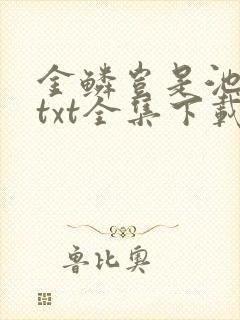 金鳞岂是池
txt全集下载
鲁比奥